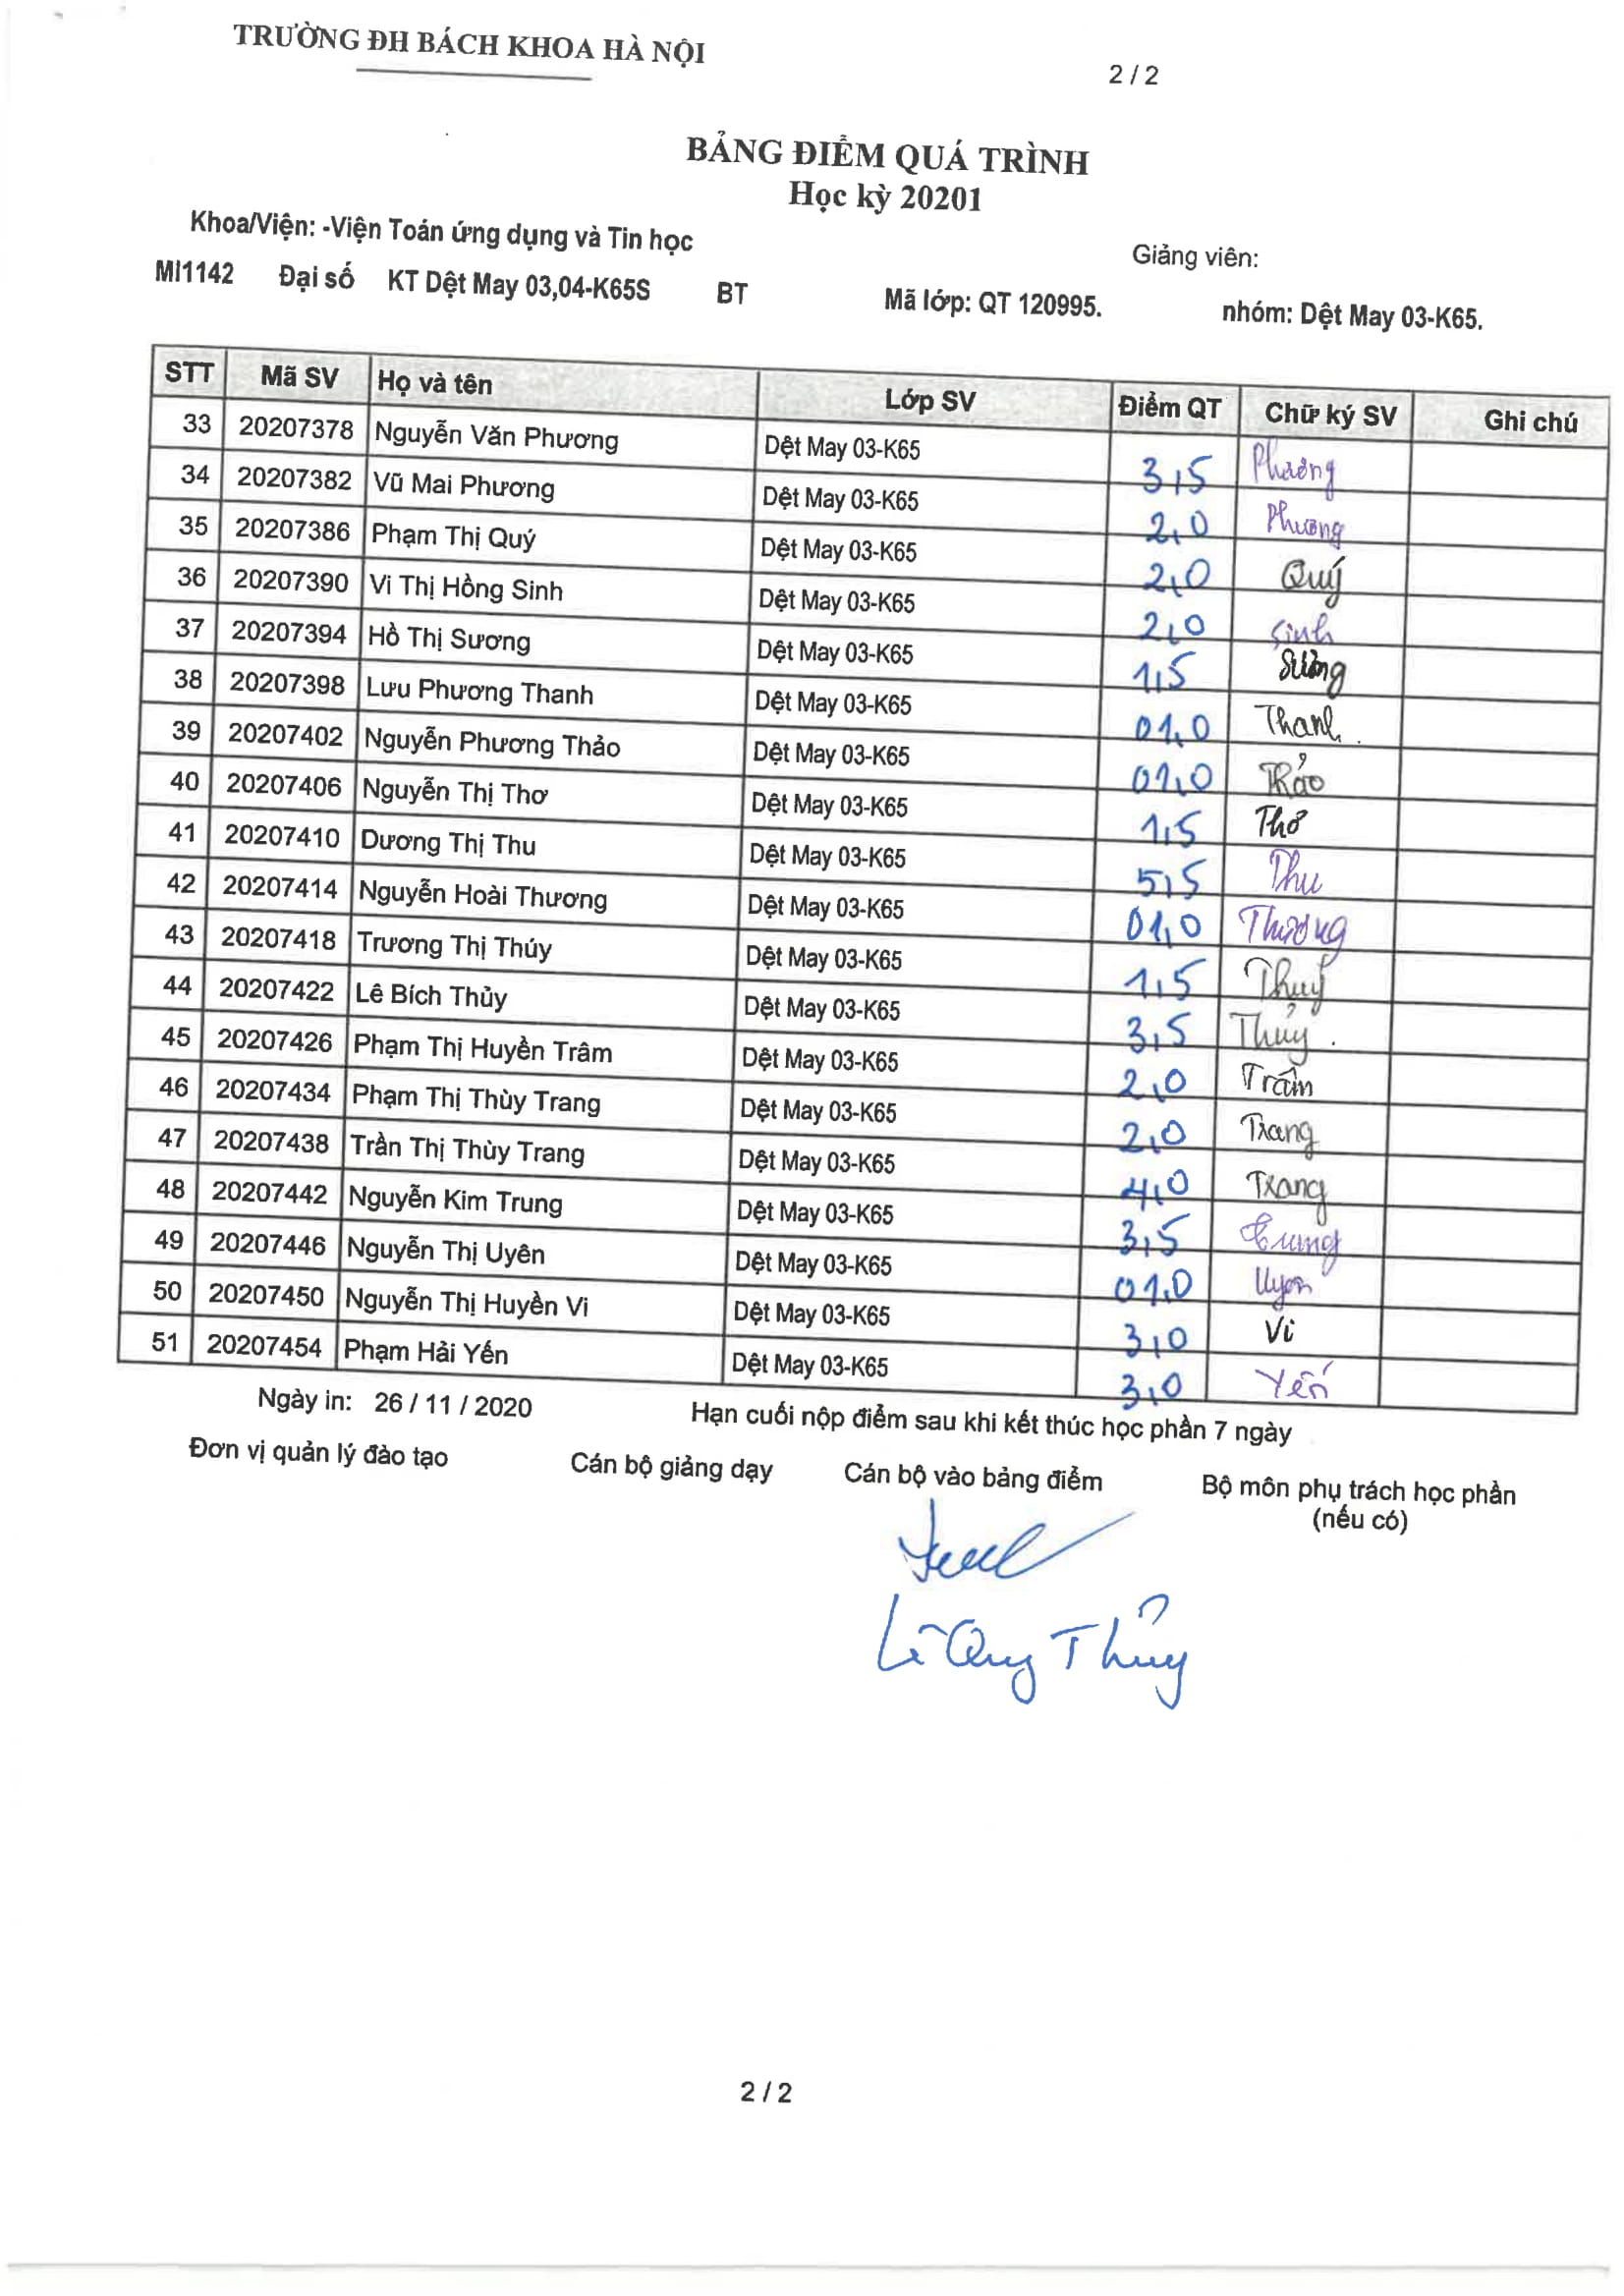 TRƯỜNG ĐH BÁCH KHOA HÀ NỘI
2 / 2
BẢNG ĐIỂM QUÁ TRÌNH
Học kỳ 20201
Khoa/Viện: -Viện Toán ứng dụng và Tin học
Giảng viên:
MI1142 Đại số KT Dệt May 03,04-K65S BT Mã lớp: QT 120995. nhóm: Dệt May 03-K65.
STT Mã SV Họ và tên Lớp SV Điểm QT Chữ ký SV Ghi chú
33 20207378 Nguyễn Văn Phương Dệt May 03-K65 3,5 Phương
34 20207382 Vũ Mai Phương Dệt May 03-K65 2,0 Phương
35 20207386 Phạm Thị Quý Dệt May 03-K65 2,0 Quý
36 20207390 Vi Thị Hồng Sinh Dệt May 03-K65 2,0 Sinh
37 20207394 Hồ Thị Sương Dệt May 03-K65 1,5 Sương
38 20207398 Lưu Phương Thanh Dệt May 03-K65 01,0 Thanh
39 20207402 Nguyễn Phương Thảo Dệt May 03-K65 01,0 Thảo
40 20207406 Nguyễn Thị Thơ Dệt May 03-K65 1,5 Thơ
41 20207410 Dương Thị Thu Dệt May 03-K65 5,5 Thu
42 20207414 Nguyễn Hoài Thương Dệt May 03-K65 01,0 Thương
43 20207418 Trương Thị Thúy Dệt May 03-K65 1,5 Thúy
44 20207422 Lê Bích Thủy Dệt May 03-K65 3,5 Thủy
45 20207426 Phạm Thị Huyền Trâm Dệt May 03-K65 2,0 Trâm
46 20207434 Phạm Thị Thùy Trang Dệt May 03-K65 2,0 Trang
47 20207438 Trần Thị Thùy Trang Dệt May 03-K65 4,0 Trang
48 20207442 Nguyễn Kim Trung Dệt May 03-K65 3,5 Trung
49 20207446 Nguyễn Thị Uyên Dệt May 03-K65 01,0 Uyên
50 20207450 Nguyễn Thị Huyền Vi Dệt May 03-K65 3,0 Vi
51 20207454 Phạm Hải Yến Dệt May 03-K65 3,0 Yến
Ngày in: 26 / 11 / 2020 Hạn cuối nộp điểm sau khi kết thúc học phần 7 ngày
Đơn vị quản lý đào tạo Cán bộ giảng dạy Cán bộ vào bảng điểm Bộ môn phụ trách học phần
(nếu có)
Lê Quang Thủy
2 / 2